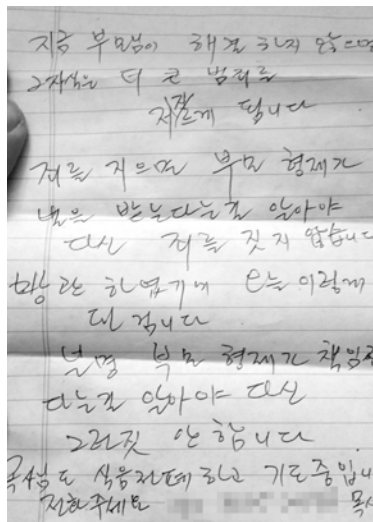 지금 부모님이 해결 하지 않으면
그자식은 더 큰 범죄를
저지르게 됩니다
죄를 지으면 부모 형제가
벌을 받는다는걸 알아야
다신 죄를 짓지 않습니다
방관 하였기에 오늘 이렇게
된 겁니다
분명 부모 형제가 책임진
다는걸 알아야 다신
그런짓 안 합니다
목사님도 식음전폐하고 기도중입니
전화주세요 목사